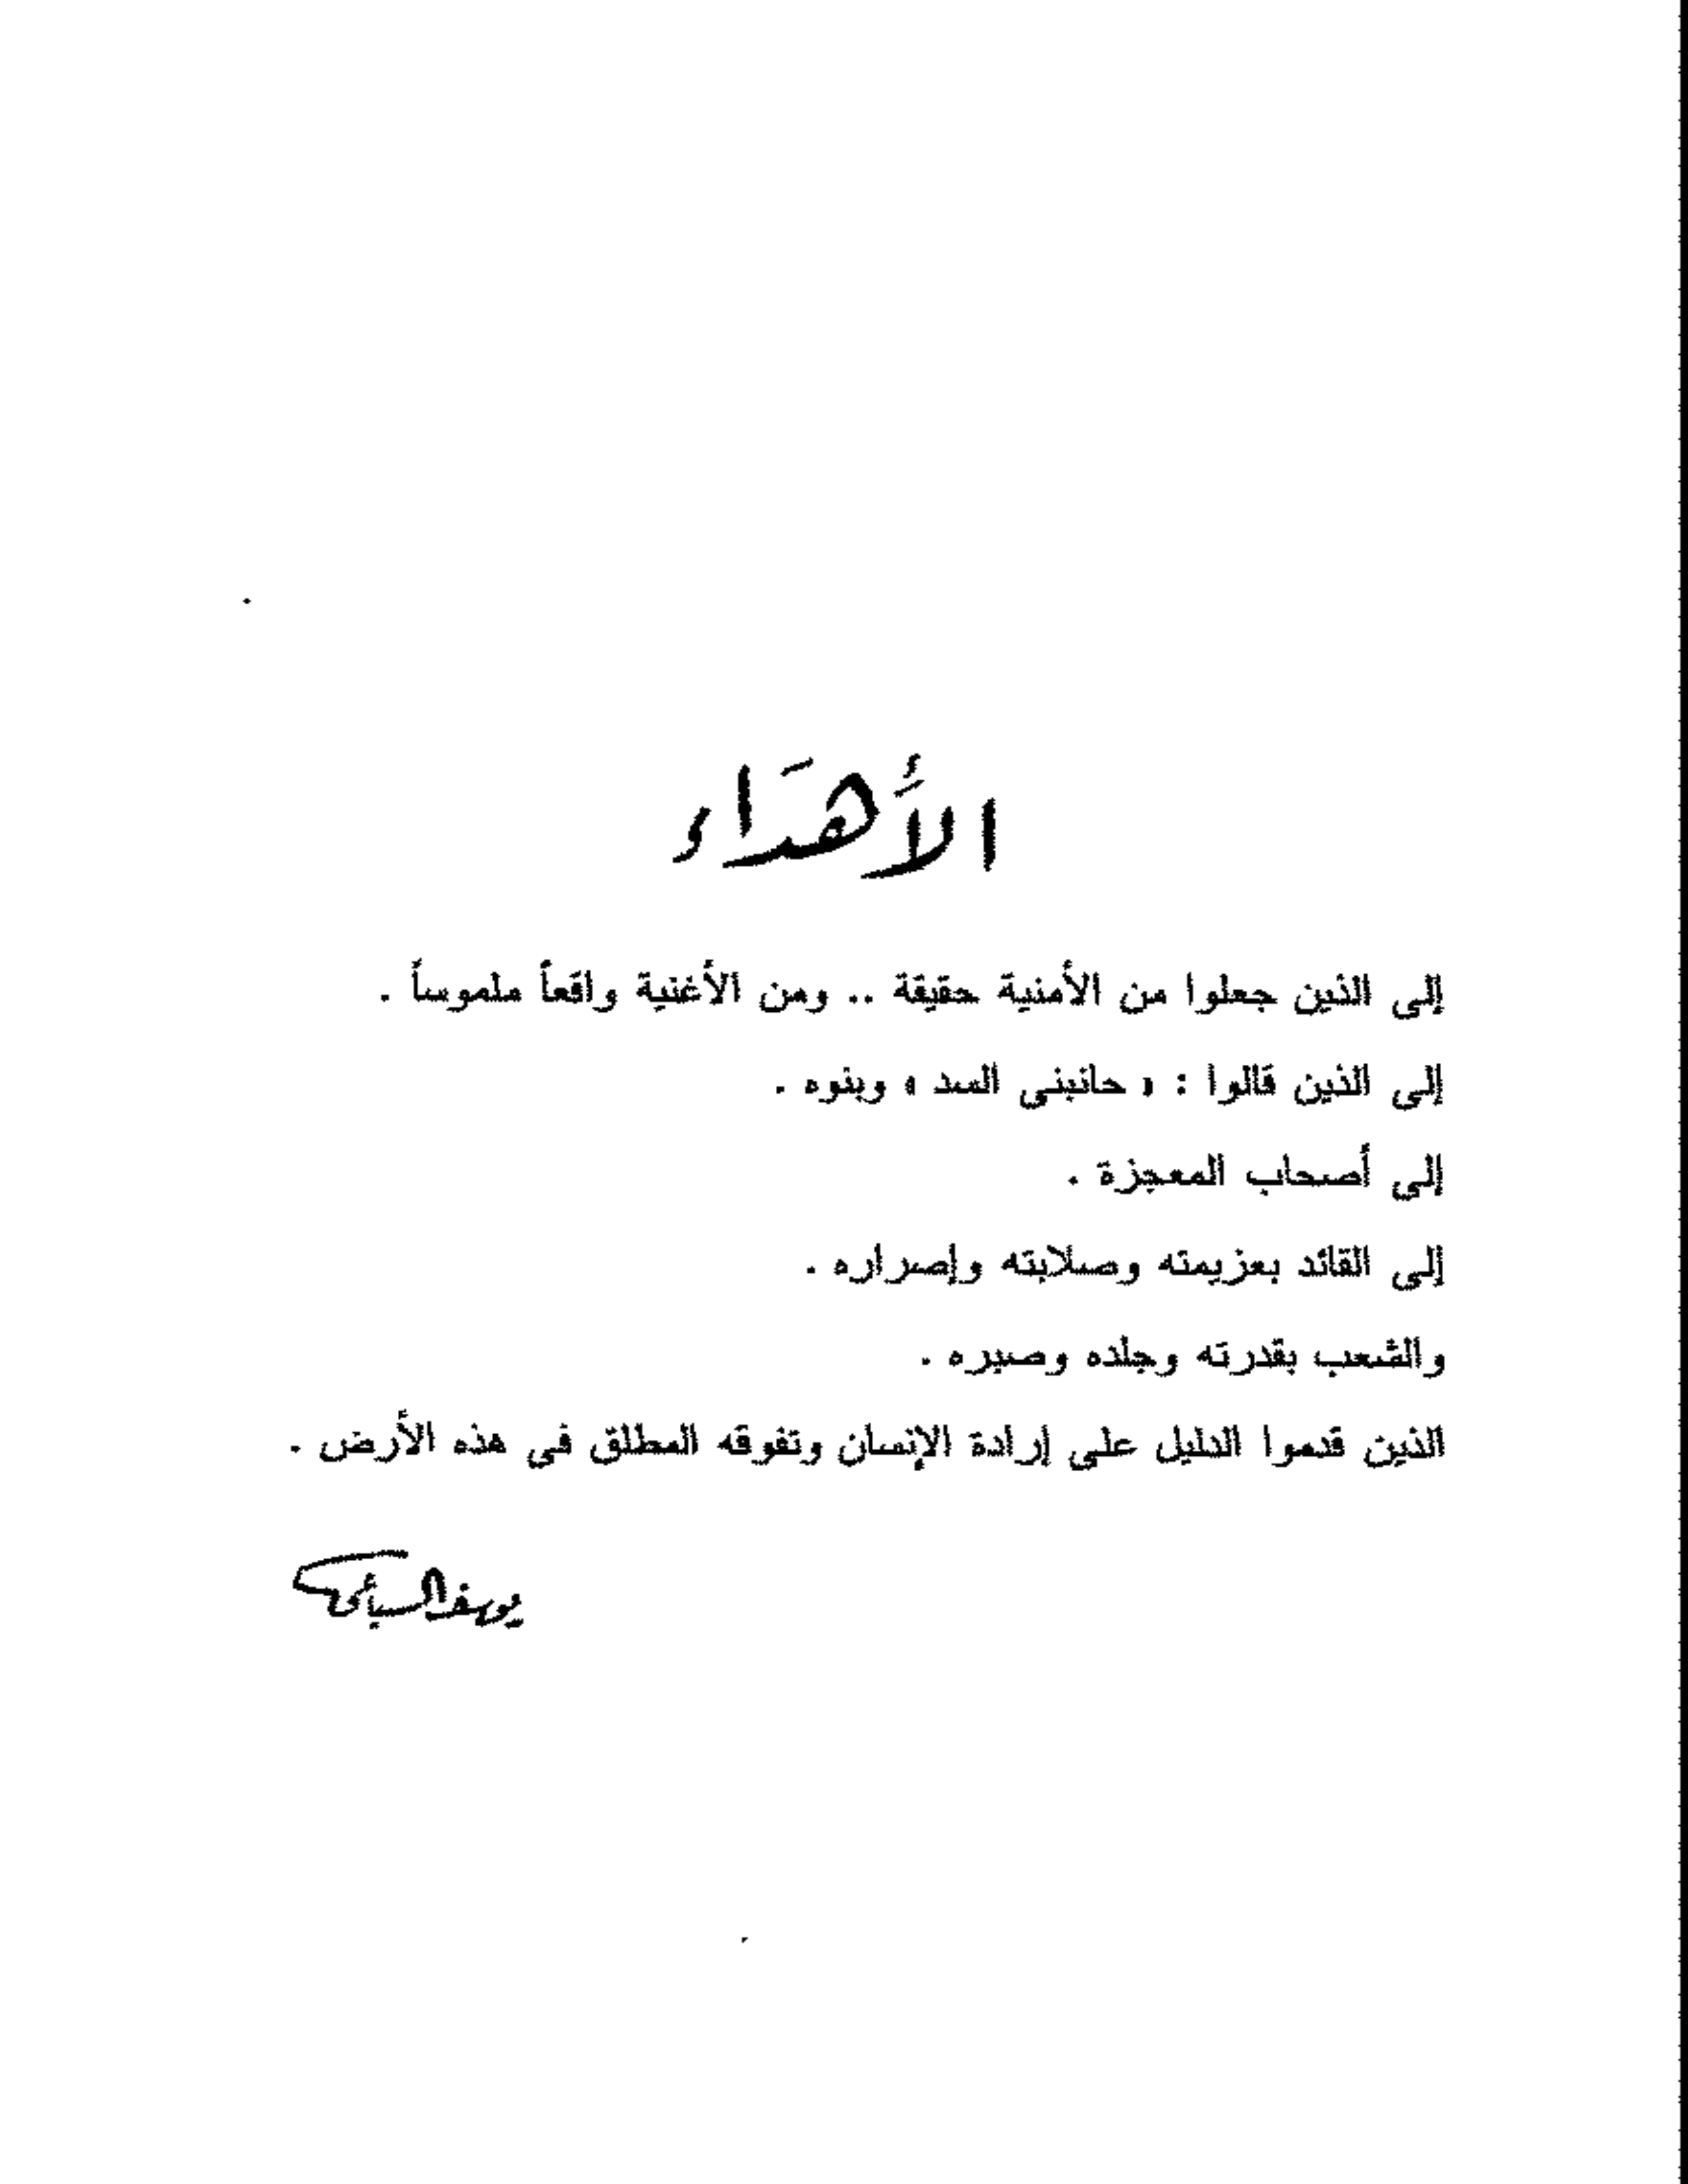 الأهداء
إلى الذين جعلوا من الأمنية حقيقة .. ومن الأغنية واقعاً ملموساً .
إلى الذين قالوا : « حانبنى السد » وبنوه .
إلى أصحاب المعجزة .
إلى القائد بعزيمته وصلابته وإصراره .
والشعب بقدرته وجلده وصبره .
الذين قدموا الدليل على إرادة الإنسان وتفوقه المطلق فى هذه الأرض .
يوسف السباعى